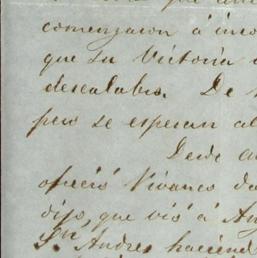 comenzaron á inco
que su Victoria
descalabro. De
pero se esperan al
Desde
ofreció Vivanco da
dijo, que vió á
Sn Andres haciend